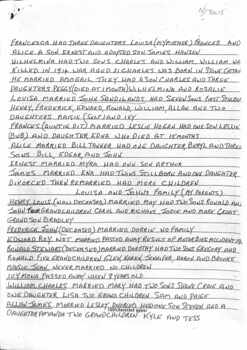 FRANCESCA HAD THREE DAUGHTERS LOUISA (MY MOTHER) FRANCES AND
ALICE A SON ERNEST AND ADOPTED SON JAMES HANSEN
WILHELMINA HAD TWO SONS CHARLES AND WILLIAM. WILLIAM WAS
KILLED IN 1916 WAR AGED 21 CHARLES WAS BORN IN
HE MARRIED ABIGAIL THEY HAD A SON CHARLES AND THREE
DAUGHTERS PEGGY (DIED AT 1 MONTH) WILHELMINA AND ROSALIE
LOUISA MARRIED JOHN SANDILANDS HAD SEVEN SONS
HENRY, FREDERICK, EDWARD, RONALD, WILLIAM, ALLAN AND TWO
DAUGHTERS MAISIE IVY
FRANCES (AUNTIE DIT) MARRIED LESLIE HORAN HAD ONE SON LESLIE
(BUB) AND DAUGHTER EDNA WHO DIED AT 14 MONTHS
ALICE MARRIED BILL TANNER HAD ONE DAUGHTER BERYL AND THREE
SONS BILL, EDGAR, AND JOHN
ERNEST MARRIED MYRA HAD ONE SON ARTHUR
JAMES MARRIED ENA HAD TWINS STILL BORN AND ONE DAUGHTER
DIVORCED THEN REMARRIED HAD MORE CHILDREN
LOUISA AND JOHNS FAMILY (MY PARENTS)
HENRY LOUIS (HAL) DECEASED) MARRIED MAY HAD TWO SONS RONALD AND
JOHN FOUR GRANDCHILDREN CAROL AND RICHARD, JODIE AND MARK GREAT
GRANDSON BRADLEY
FREDERICK JOHN (DECEASED) MARRIED DORRIN NO FAMILY
EDWARD ROY NOT MARRIED PASSED AWAY RESULT OF MOTOR BIKE ACCIDENT
RONALD STEWART (DECEASED) MARRIED DOROTHY HAD TWO SONS GREGORY AND
RONALD FIVE GRANDCHILDREN GLEN KAREN JENNIFER, DARIN AND BROOKE
MAISIE JOAN NEVER MARRIED NO CHILDREN
IVY MENA PASSED AWAY WHEN 8 YEARS OLD
WILLIAM CHARLES MARRIED MARY HAD TWO SONS STEVE CRAIG AND
ONE DAUGHTER LISA TWO GRAND CHILDREN SAM AND PAIGE
ALLAN JAMES MARRIED LESLEY HAD ONE SON STEVEN AND A
DAUGHTER AMANDA TWO GRANDCHILDREN KYLE AND TESS